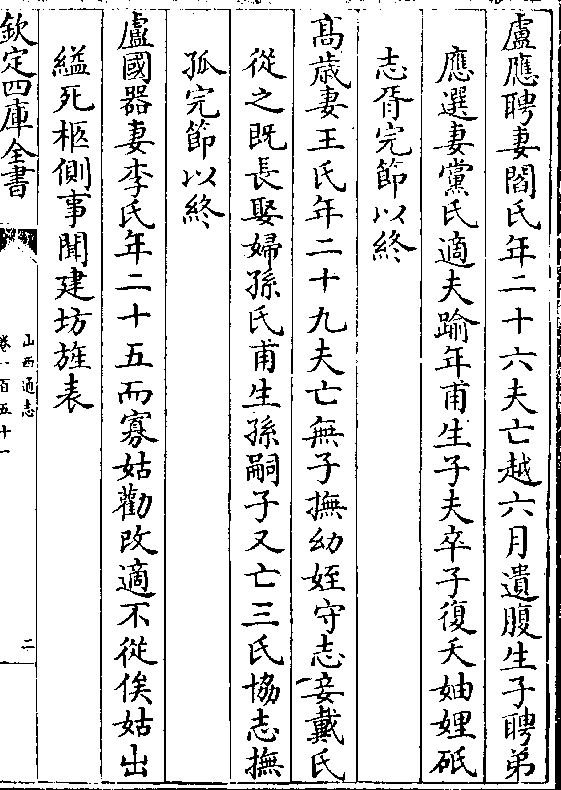 盧應聘妻閻氏年二十六夫亡越六月遺腹生子聘弟
應選妻黨氏適夫踰年甫生子夫卒子復夭妯娌砥
志胥完節以終
髙歳妻王氏年二十九夫亡無子撫幼姪守志妾戴氏
從之既長娶婦孫氏甫生孫嗣子又亡三氏恊志撫
孤完節以終
盧國器妻李氏年二十五而寡姑勸改適不從俟姑出
縊死柩側事聞建坊旌表
欽定四庫全書
山西通志
卷一百五十一
二